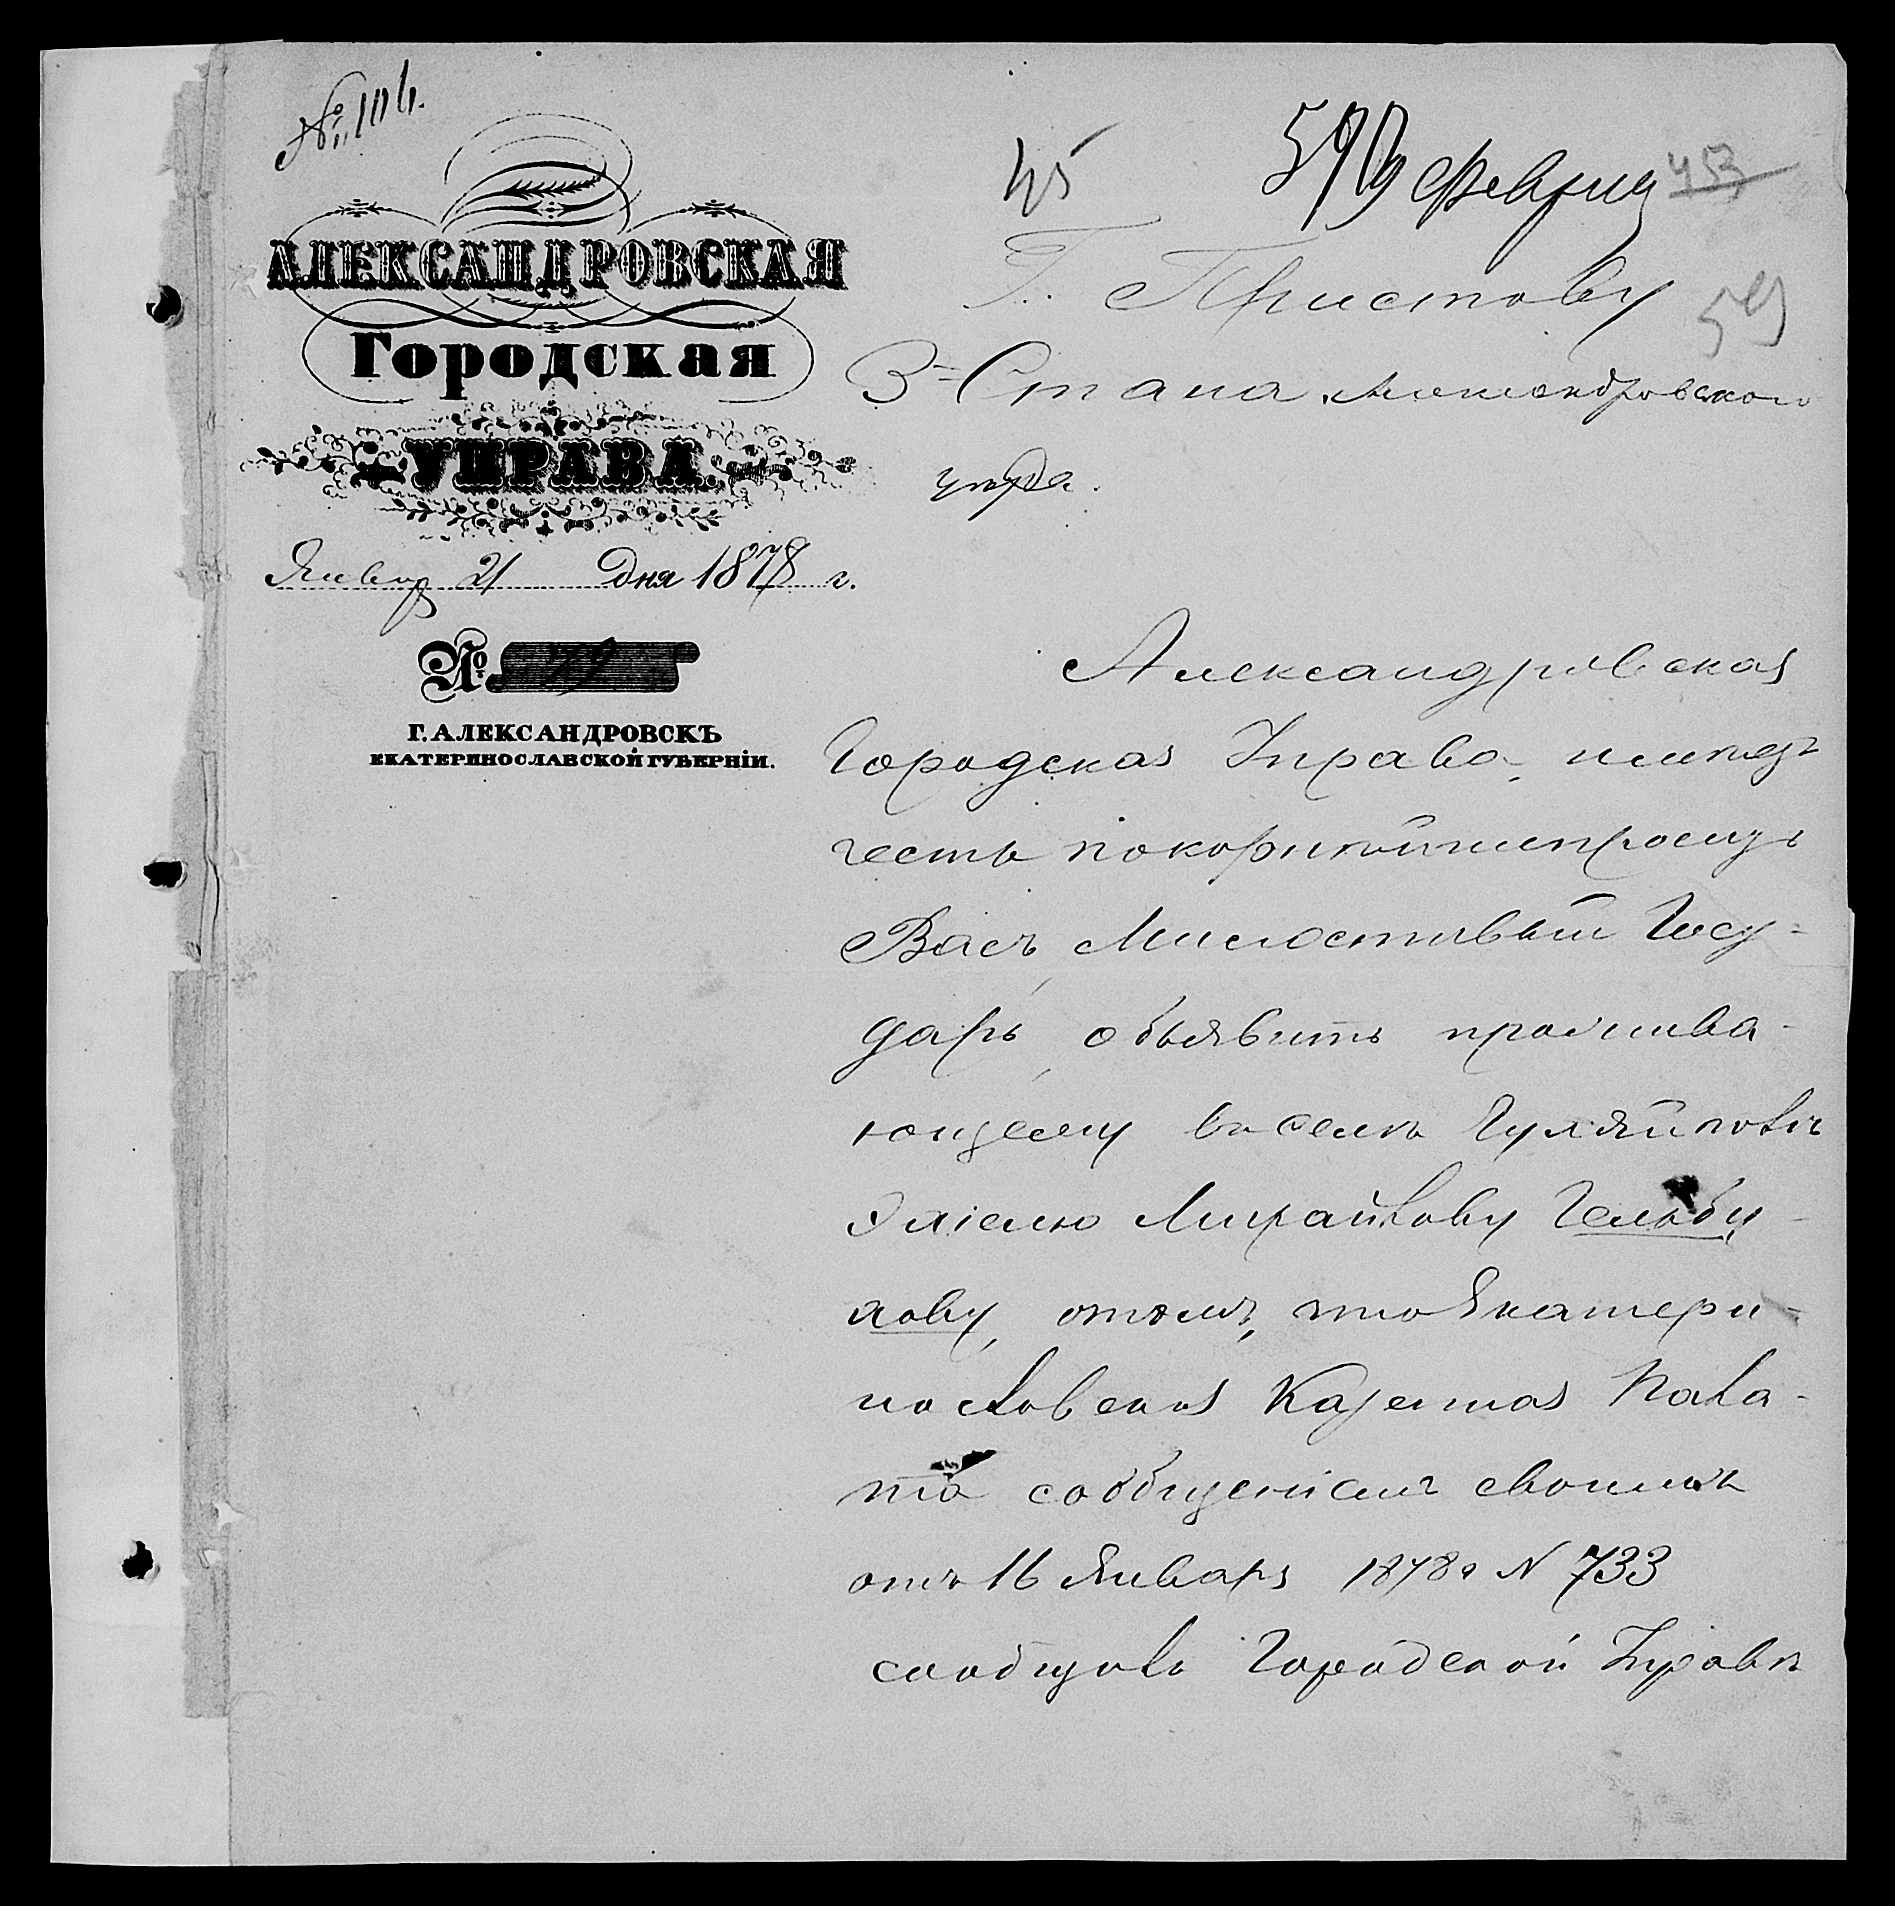 № 104.
45
9 Февраля
453
59
АЛЕКСАНДРОВСКАЯ
Городская
УПРАВА.
Январ 21 дня 1878 г.
№ 79
Г. АЛЕКСАНДРОВСКЪ
ЕКАТЕРИНОСЛАВСКОЙ ГУБЕРНІИ.
Г. Приставу
3го Стана Александровскаго
уезда.
Александровская
Городская Управа, имеетъ
честь покорнейше просить
Васъ, Милостивый Госу-
дарь, объявить прожива-
ющему въ селе Гуляйполе
Эліелю Михайлову Гельбу-
хову, о томъ, что Екатери-
нославская Казенная Пала-
та сообщеніемъ своимъ
отъ 16 Января 1878 г N 733
сообщила Городской Управе